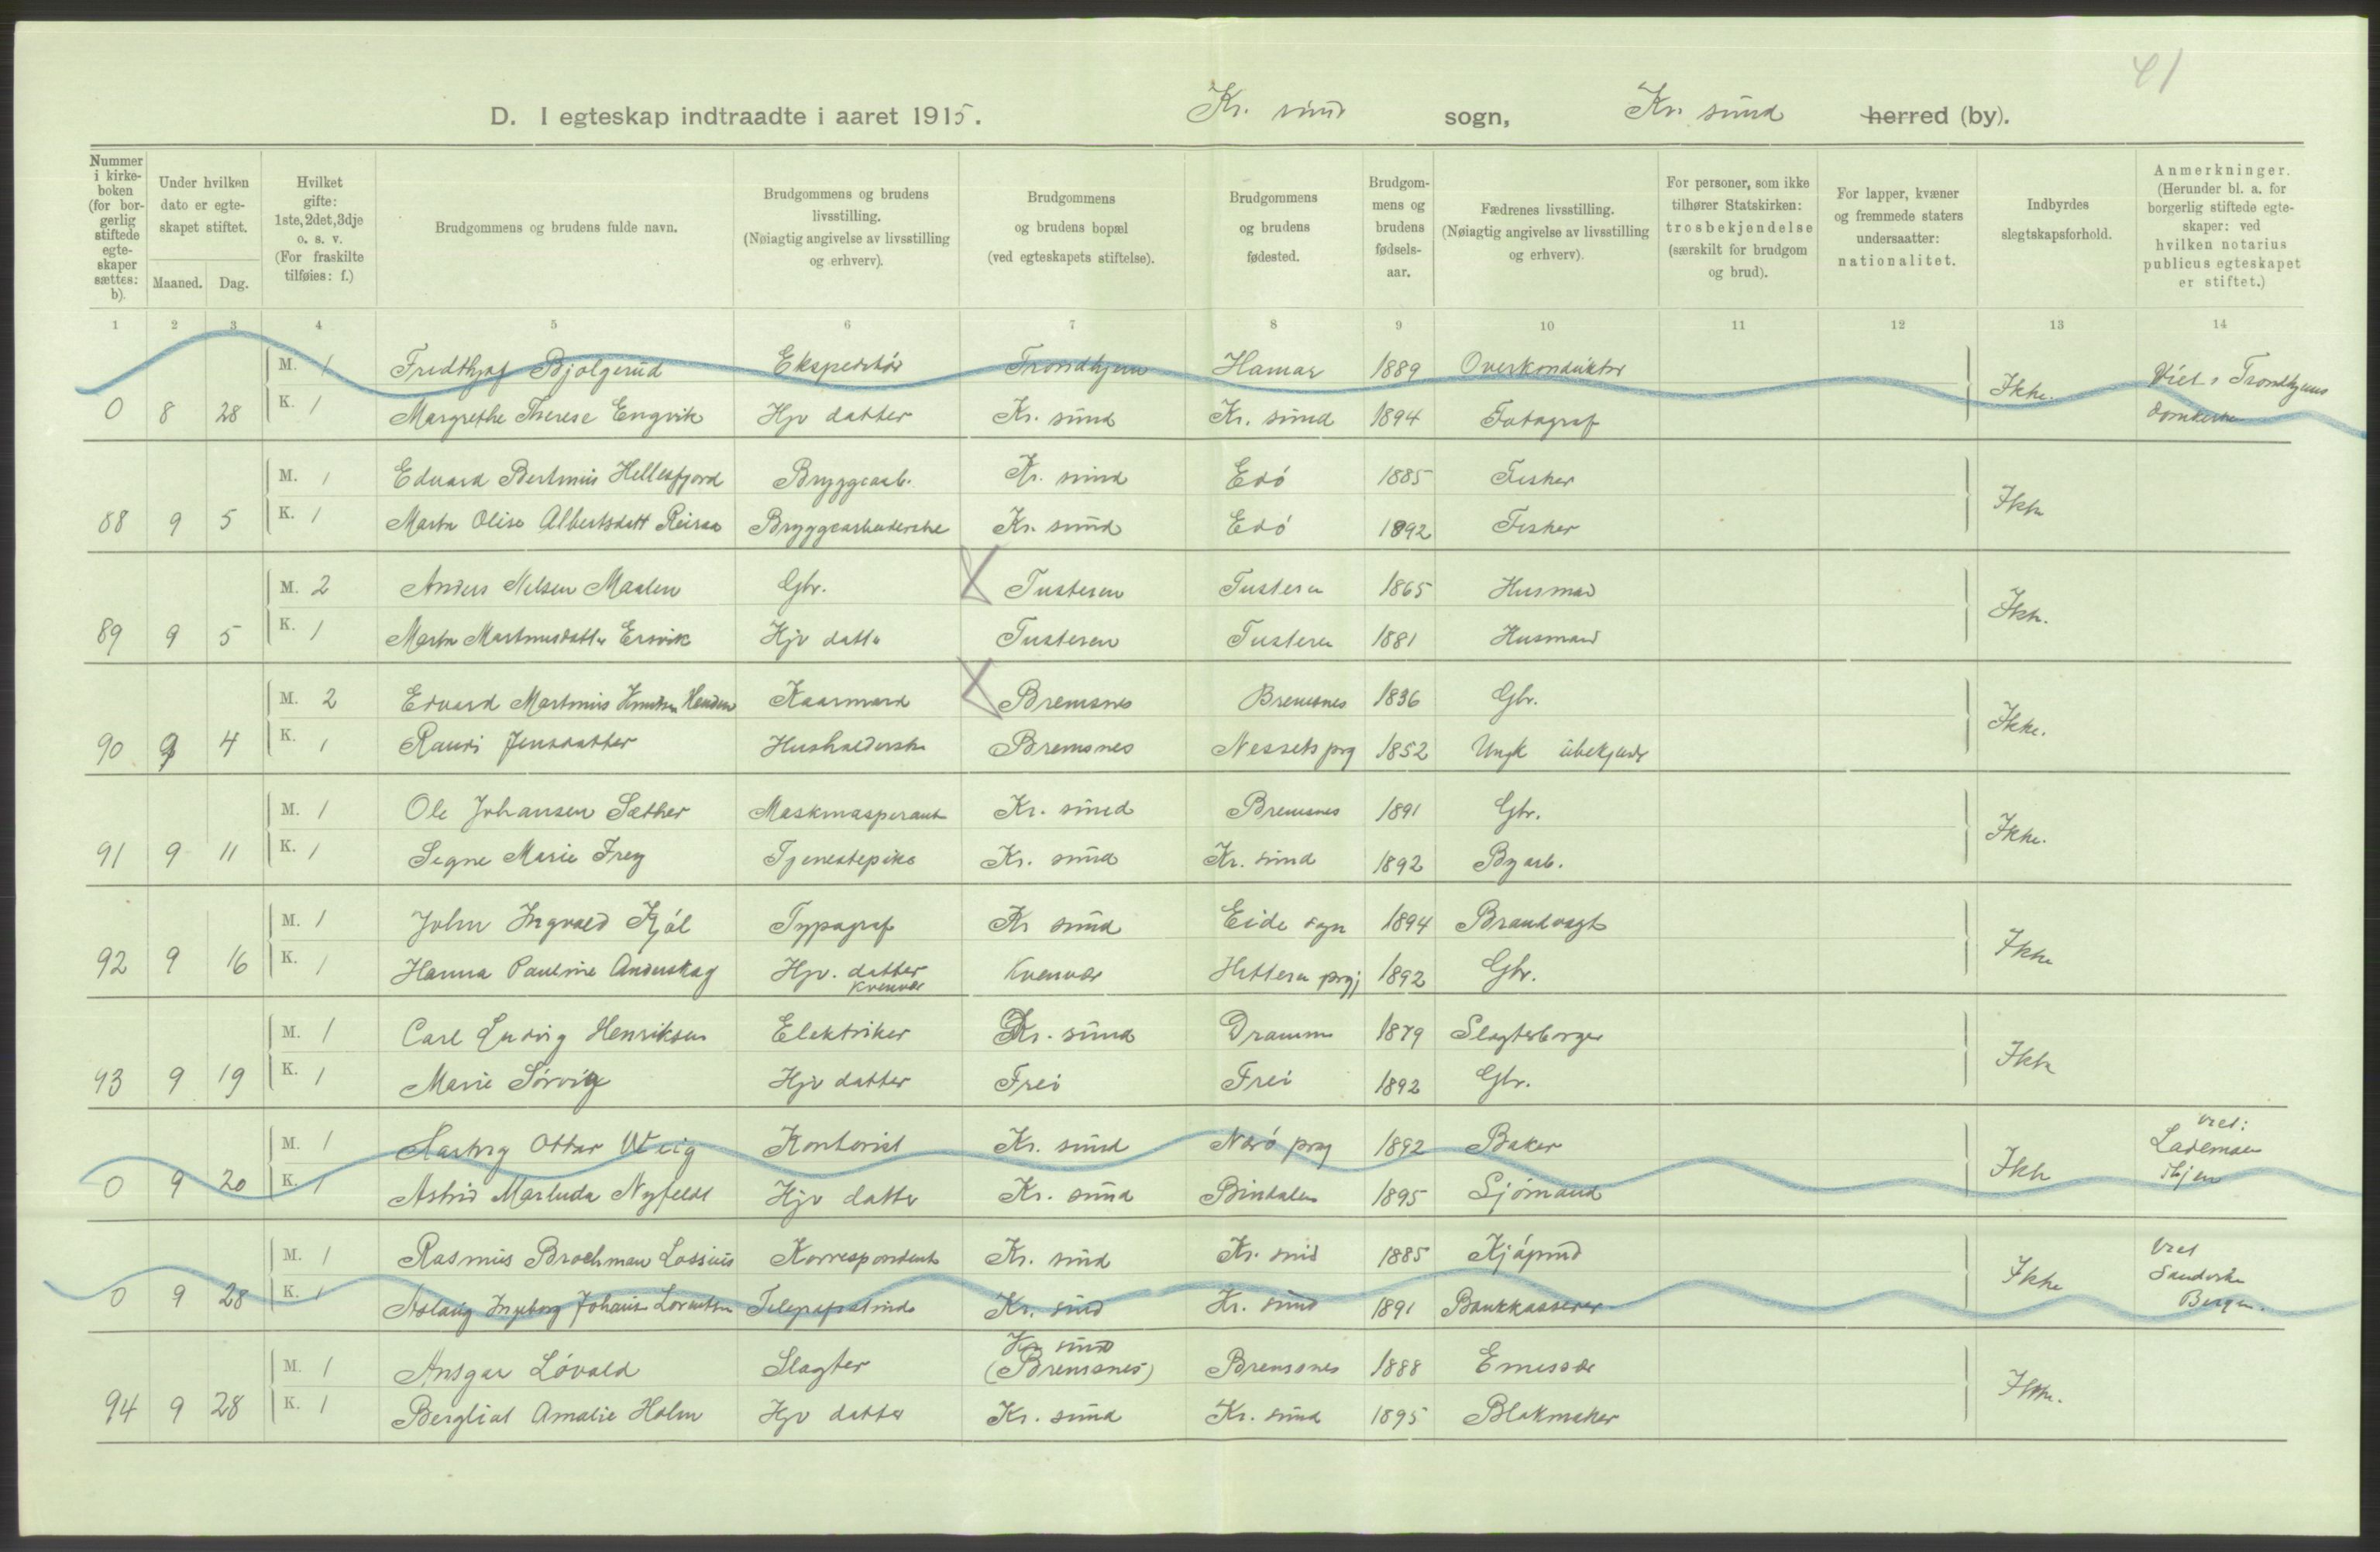 41
D. I egteskap indtraadte i aaret 1915. Kr. sund sogn, Kr. sund herred (by).
Nummer i kirke-boken (for bor-gerlig stiftede egte-skaper sættes: b).
Under hvilken dato er egte-skapet stiftet.
Maaned. Dag.
Hvilket gifte: 1ste, 2det, 3dje o. s. v. (For fraskilte tilføies: f.)
Brudgommens og brudens fulde navn.
Brudgommens og brudens livsstilling. (Nøiagtig angivelse av livsstilling og erhverv).
Brudgommens og brudens bopæl (ved egteskapets stiftelse).
Brudgommens og brudens fødested.
Brudgom-mens og brudens fødsels-aar.
Fædrenes livsstilling. (Nøiagtig angivelse av livsstilling og erhverv).
For personer, som ikke tilhører Statskirken: trosbekjendelse (særskilt for brudgom og brud).
For lapper, kvæner og fremmede staters undersaatter: nationalitet.
Indbyrdes slegtskapsforhold.
Anmerkninger. (Herunder bl. a. for borgerlig stiftede egte-skaper: ved hvilken notarius publicus egteskapet er stiftet.)
1 2 3 4 5 6 7 8 9 10 11 12 13 14
M. 1 Fredthjof Bjølgerud Ekspeditør Trondhjem Hamar 1889 Overkonduktør Ikke. Viet i Trondhjems
0 8 28 K. 1 Margrethe Therese Engvik Hjv datter Kr. sund Kr. sund 1894 Fotograf Domkirke
M. 1 Edvard Bertinius Hellesfjord Bryggearb. Kr. sund Edö 1885 Fisker Ikke
88 9 5 K. 1 Marta Olise Albertsdatt Bryggearbeiderske Kr. sund Edö 1892 Fisker
M. 2 Anders Nelsen Maalen Gbr. Tusteren Tusteren 1865 Husmand Ikke.
89 9 5 K. 1 Marta Martinusdatter Ersvik Hjv datter Tusteren Tusteren 1881 Husmand
M. 2 Edvard Martinus Knutsen Kaarmand Bremsnes Bremsnes 1836 Gbr. Ikke.
90 9 4 K. 1 Randi Jensdatter Husholderske Bremsnes Nessets prg 1852 Ungk ubekjendt
M. 1 Ole Johansen Sæther Maskinaspirant Kr. sund Bremsnes 1891 Gbr. Ikke.
91 9 11 K. 1 Signe Marie Frey Tjenestepike Kr. sund Kr. sund 1892 Byarb.
M. 1 John Ingvald Kjöl Typograf Kr sund Eide sogn 1894 Brandvagt Ikke
92 9 16 K. 1 Hanna Pauline Anderskag Hjv. datter Kvenvær Hitteren prgj 1892 Gbr.
Kvenvær
M. 1 Carl Ludvig Henriksen Elektriker Kr. sund Dramm 1879 Slagterborger Ikke
93 9 19 K. 1 Marie Sörvig Hjv datter Frei Frei 1892 Gbr.
viet:
M. 1 Hartvig Ottar Wiig Kontorist Kr. sund Nærö prg 1892 Baker Ikke Lademoen
0 9 20 K. 1 Astrid Marluda Nyfeldt Hjv datter Kr. sund Bindalen 1895 Sjömand Thjem
M. 1 Rasmus Brochman Lossius Korrespondent Kr. sund Kr. sund 1885 Kjöpmd Ikke Viet Sandvike
0 9 28 K. 1 Aslaug Ingeborg Johanne Lorentsen Telegrafistinde Kr. sund Kr. sund 1891 Bankkasserer Bergen.
Kr sund
M. 1 Ansgar Lövold Slagter (Bremsnes) Bremsnes 1888 Emissær Ikke.
94 9 28 K. 1 Bergliot Amalie Holm Hjv datter Kr. sund Kr. sund 1895 Blokmaker